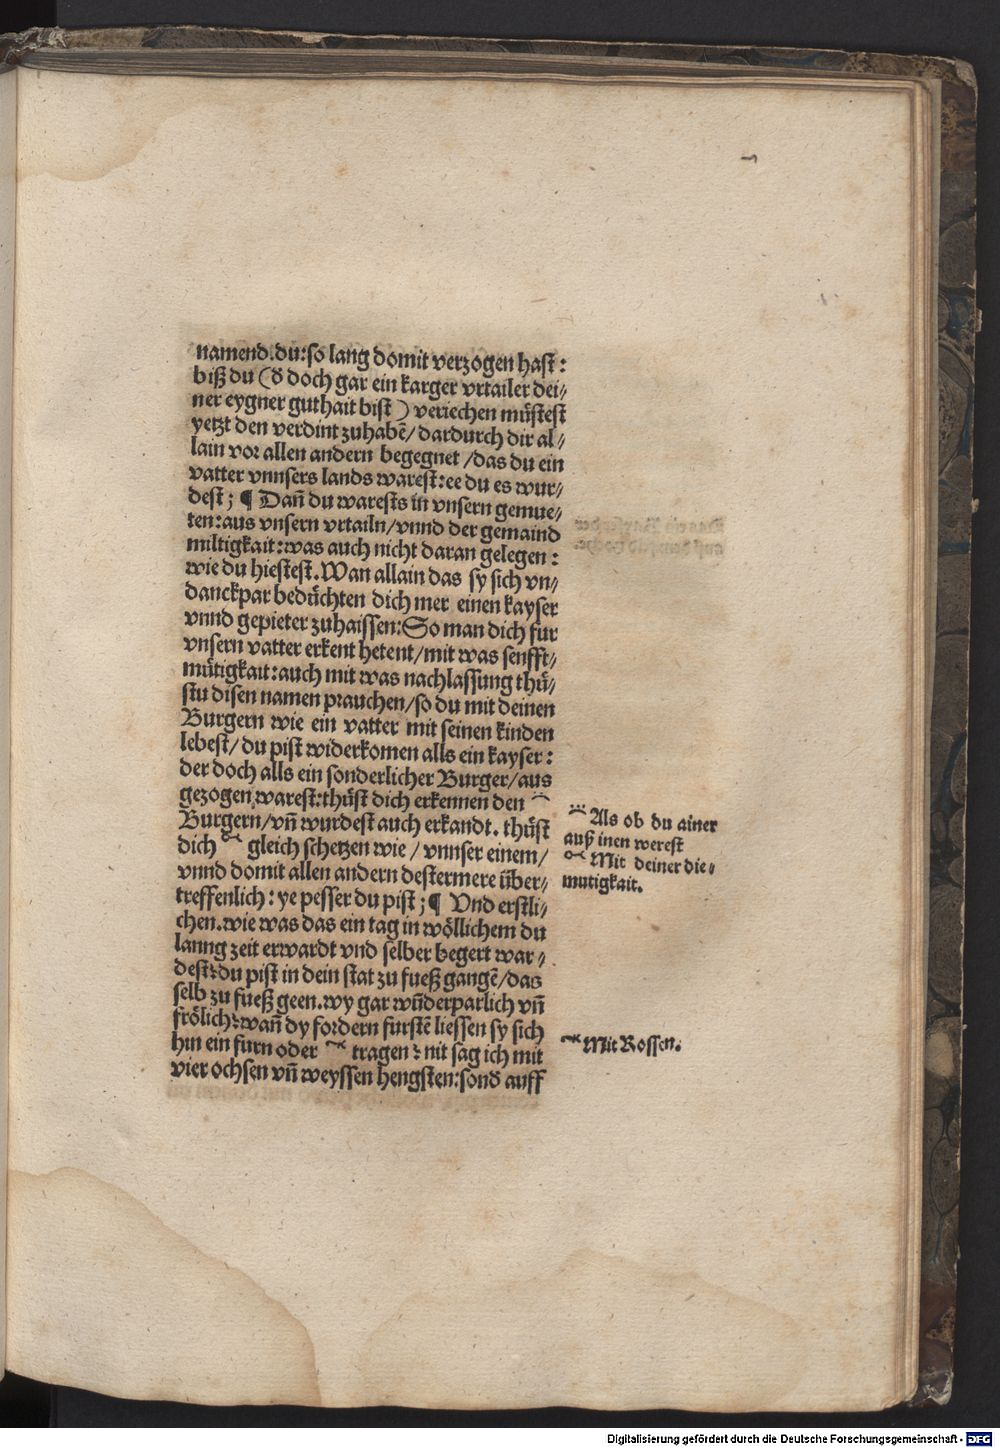 namend.du:so lang domit verzogen hast:
biß du (d̕ doch gar ein karger vrtailer dei⸗
ner eygner guthait bist) veriechen müstest
yetzt den verdint zuhabē/dardurch dir al⸗
lain vor allen andern begegnet/das du ein
vatter vnnsers lands warest:ee du es wur⸗
dest; ¶ Dañ du warests in vnsern gemue⸗
ten:aus vnsern vrtailn/vnnd der gemaind
miltigkait:was auch nicht daran gelegen:
wie du hiestest.Wan allain das sy sich vn⸗
danckpar bedüchten dich mer einen kayser
vnnd gepieter zuhaissen:So man dich fur
vnsern vatter erkent hetent/mit was senfft⸗
mütigkait:auch mit was nachlassung thü⸗
stu disen namen prauchen/so du mit deinen
Burgern wie ein vatter mit seinen kinden
lebest/du pist widerkomen alls ein kayser:
der doch alls ein sonderlicher Burger/aus
gezogen warest:thüst dich erkennen den
Burgern/vñ wurdest auch erkandt. thüst
dich gleich schetzen wie/vnnser einem/
vnnd domit allen andern destermere über⸗
treffenlich: ye pesser du pist;¶ Vnd erstli⸗
chen.wie was das ein tag in wöllichem du
lanng zeit erwardt vnd selber begert war⸗
dest?du pist in dein stat zu fueß gangē/das
selb zu fueß geen.wy gar wūderparlich vñ
frölich?wañ dy fordern furstē liessen sy sich
hin ein furn oder tragen? nit sag ich mit
vier ochsen vñ weyssen hengsten:sond̕ auff
Als ob du ainer
auß inen werest
Mit deiner die⸗
mutigkait.
Mit Rossen.
Digitalisierung gefördert durch die Deutsche Forschungsgemeinschaft - DFG